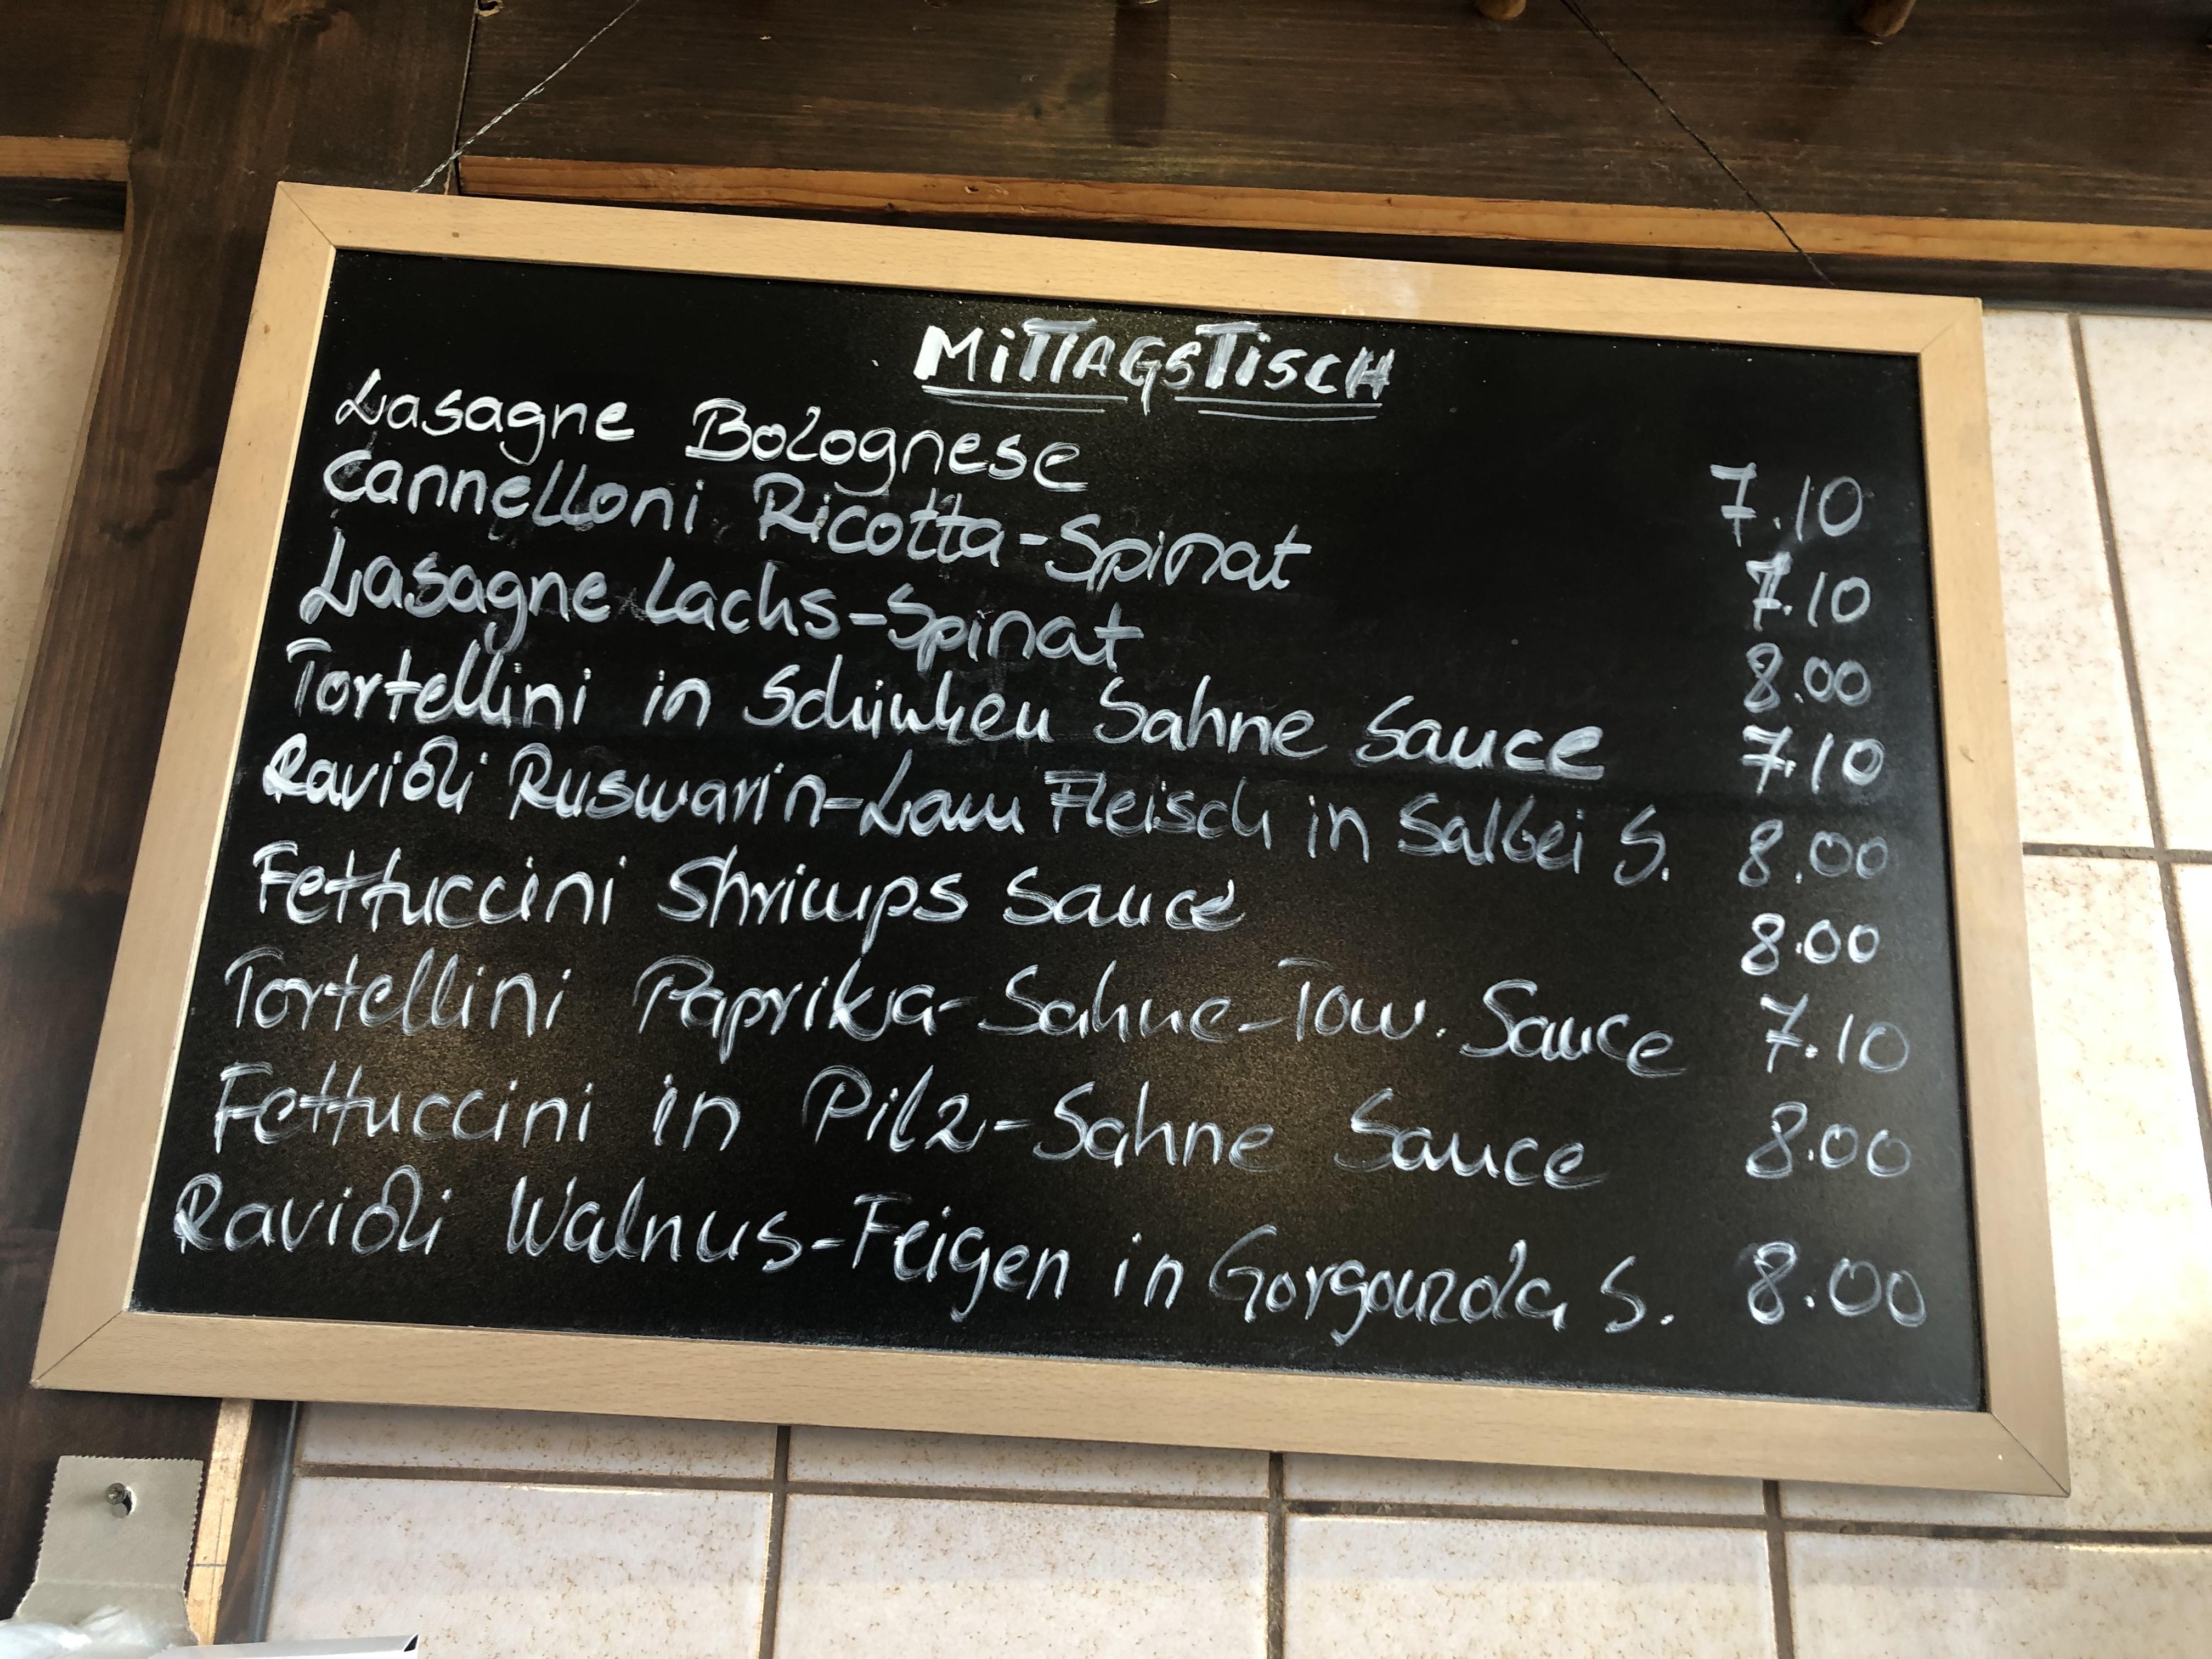 MiTTAGSTiSCH
Lasagne Bolognese 7.10
Cannelloni Ricotta-Spinat 7.10
Lasagne Lachs-Spinat 8.00
Tortellini in Schinken Sahne Sauce 7.10
Ravioli Ruswarin-Lam Fleisch in Salbei S. 8.00
Fettuccini Shrimps Sauce 8.00
Tortellini Paprika-Sahne-Tom. Sauce 7.10
Fettuccini in Pilz-Sahne Sauce 8.00
Ravioli Walnus-Feigen in Gorgonzola S. 8.00